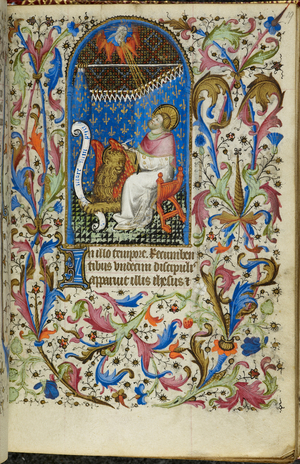 In illo tempore. Recumben
tibus vndecim discipulis
apparuit illis ihesus &